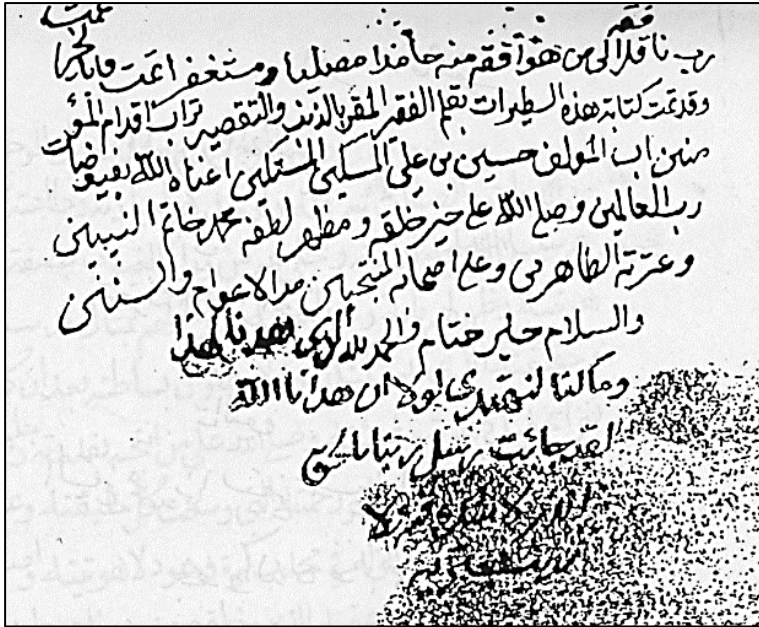 تمت
فقه
رب ناقلا الى من هو أفقه منه حامدا مصليا ومستغفرا تمت بالخير
وقد تمت كتابة هذه السطيرات بقلم الفقير المقر بالذنب والتقصير تراب اقدام المؤ
منين اب المؤلف حسين بن علي المسكين المستكين اغناه الله بفيوضات
رب العالمين وصلى الله على خير خلقه ومظهر لطفه محمد خاتم النبيين
وعترته الطاهرين وعلى اصحابه المنتجبين مدا الاعوام والسنين
والسلام خير ختام والحمد لله الذي هدانا لهذا
وما كنا لنهتدي لولا ان هدانا الله
لقد جائت رسل ربنا بالحق